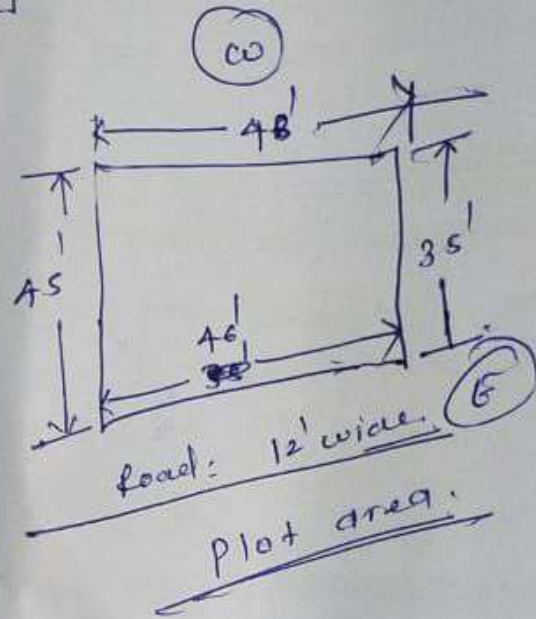 48'
45'
35'
46'
Road: 12' wide.
E
Plot area.